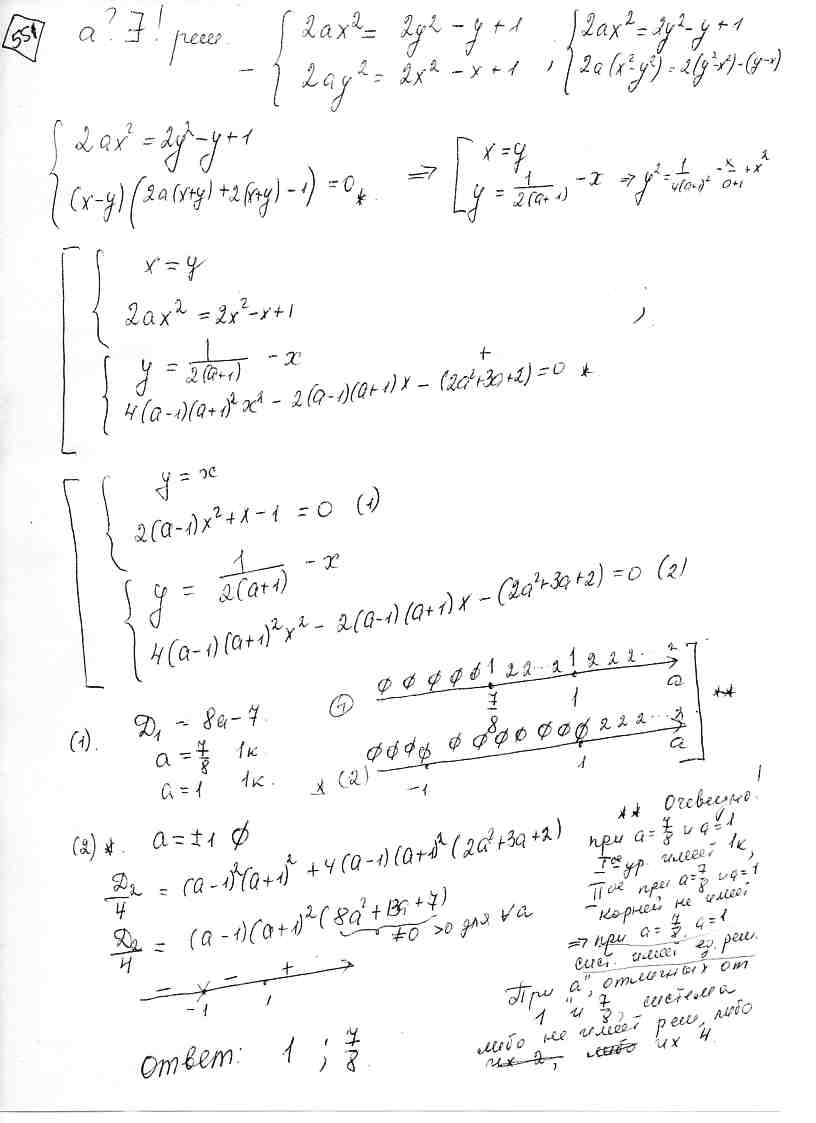 551 a? ∃! реш. – { 2ax² = 2y² – y + 1 ; { 2ax² = 2y² – y + 1
2ay² = 2x² – x + 1 2a(x²–y²) = 2(y²–x²) – (y–x)
{ 2ax² = 2y² – y + 1
(x–y)(2a(x+y) + 2(x+y) – 1) = 0 * ⇒ [ x = y
y = 1/2(a+1) – x ⇒ y² = 1/4(a+1)² – x/a+1 + x²
[ { x = y
2ax² = 2x² – x + 1 ;
{ y = 1/2(a+1) – x
4(a–1)(a+1)²x² – 2(a–1)(a+1)x – (2a²+3a+2) = 0 *
[ { y = x
2(a–1)x² + x – 1 = 0 (1)
{ y = 1/2(a+1) – x
4(a–1)(a+1)²x² – 2(a–1)(a+1)x – (2a²+3a+2) = 0 (2)
(1). D₁ = 8a – 7
a = 7/8 1к.
a = 1 1к.
(1) ∅ ∅ ∅ ∅ ∅ 1 2 2 .. 2 1 2 2 2 ... 2
7/8 1 a
* (2) ∅∅∅∅ ∅ ∅∅∅ ∅∅∅∅ 2 2 2 ... 2 ] **
–1 1 a
(2) *. a = ±1 ∅
D₂/4 = (a–1)²(a+1)² + 4(a–1)(a+1)²(2a²+3a+2)
D₂/4 = (a–1)(a+1)²(8a²+13a+7)
≠0 >0 для ∀a
– – +
–1 1
Ответ: 1 ; 7/8.
** Очевидно!
при a = 7/8 и a = 1
I ое ур. имеет 1к,
II ое при a = 7/8 и a = 1
корней не имеет
⇒ при a = 7/8, a = 1
сист. имеет ед. реш.
При "a", отличных от
1 и 7/8, система
либо не имеет реш, либо
их 2, либо их 4.